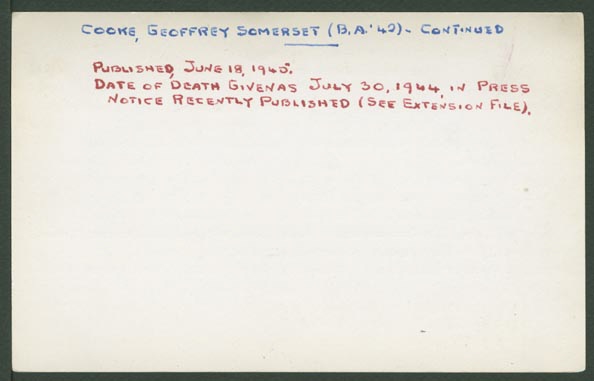 COOKE, GEOFFREY SOMERSET (B.A. '42). - CONTINUED
PUBLISHED, JUNE 18, 1945.
DATE OF DEATH GIVEN AS JULY 30, 1944, IN PRESS
NOTICE RECENTLY PUBLISHED (SEE EXTENSION FILE).